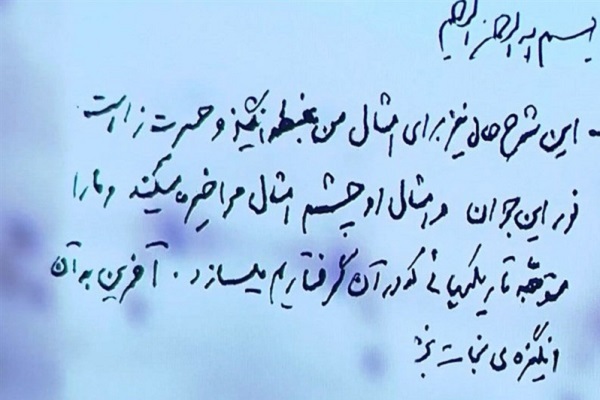 بسم الله الرحمن الرحیم
- این شرح حال نیز برای امثال من غبطه‌انگیز و حسرت‌زا است
نور این جوان و امثال او چشم امثال مرا خیره میکند و ما را
متوجّه تاریکیهائی که در آن گرفتاریم میسازد. آفرین به آن
انگیزه‌ی نجات‌بخش